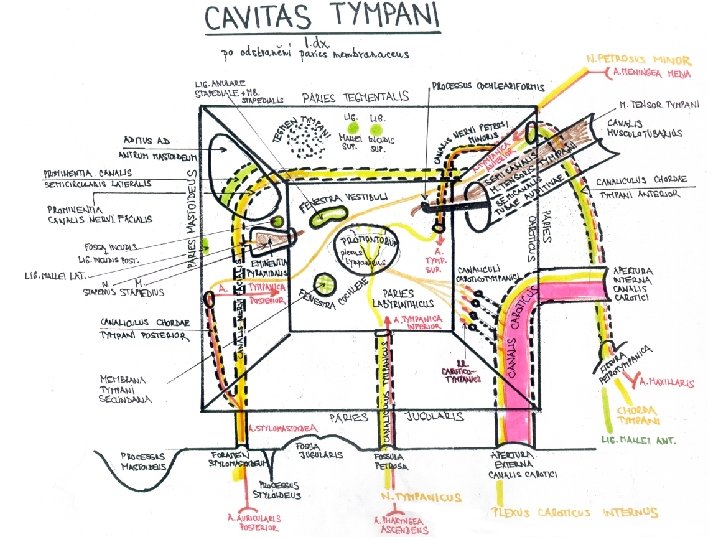 CAVITAS TYMPANI
l.dx
po odstranění paries membranaceus
N. PETROSUS MINOR
A. MENINGEA MEDIA
LIG. ANULARE
STAPEDIALE + MB.
STAPEDIALIS
PARIES TEGMENTALIS
PROCESSUS COCHLEARIFORMIS
M. TENSOR TYMPANI
CANALIS
MUSCULOTUBARIUS
TEGMEN TYMPANI
LIG.
MALLEI
SUP.
LIG.
INCUDIS
SUP.
CANALIS NERVI PETROSI
MINORIS
A. TYMPANICA
SUPERIOR
ADITUS AD
ANTRUM MASTOIDEUM
SEMICANALIS
M. TENSORIS TYMPANI
SEMICANALIS
TUBAE AUDITIVAE
PROMINENTIA CANALIS
SEMICIRCULARIS LATERALIS
CANALICULUS CHORDAE
TYMPANI ANTERIOR
PARIES MASTOIDEUS
FENESTRA VESTIBULI
PROMINENTIA
CANALIS NERVI FACIALIS
PARIES
CAROTICUS
PROMONTORIUM
plexus
tympanicus
FOSSA INCUDIS
LIG. INCUDIS POST.
LIG. MALLEI LAT.
A.
TYMP.
SUP.
EMINENTIA
PYRAMIDALIS
N.
STAPEDIUS
M.
STAPEDIUS
CANALICULI
CAROTICOTYMPANICI
APERTURA
INTERNA
CANALIS
CAROTICI
A. TYMPANICA
POSTERIOR
FENESTRA COCHLEAE
PARIES
LABYRINTHICUS
CANALIS CAROTICUS
CANALICULUS CHORDAE
TYMPANI POSTERIOR
CANALIS NERVI FACIALIS
A. TYMPANICA
INFERIOR
CANALICULUS TYMPANICUS
RR.
CAROTICO-
TYMPANICI
FISSURA
PETROTYMPANICA
MEMBRANA
TYMPANI
SECUNDARIA
A. MAXILLARIS
CHORDA
TYMPANI
LIG. MALLEI ANT.
PARIES JUGULARIS
A. STYLOMASTOIDEA
PROCESSUS
MASTOIDEUS
FORAMEN
STYLOMASTOIDEUM
FOSSA
JUGULARIS
FOSSULA
PETROSA
APERTURA
EXTERNA
CANALIS CAROTICI
PROCESSUS
STYLOIDEUS
N. TYMPANICUS
PLEXUS CAROTICUS INTERNUS
A. AURICULARIS
POSTERIOR
A. PHARYNGEA
ASCENDENS